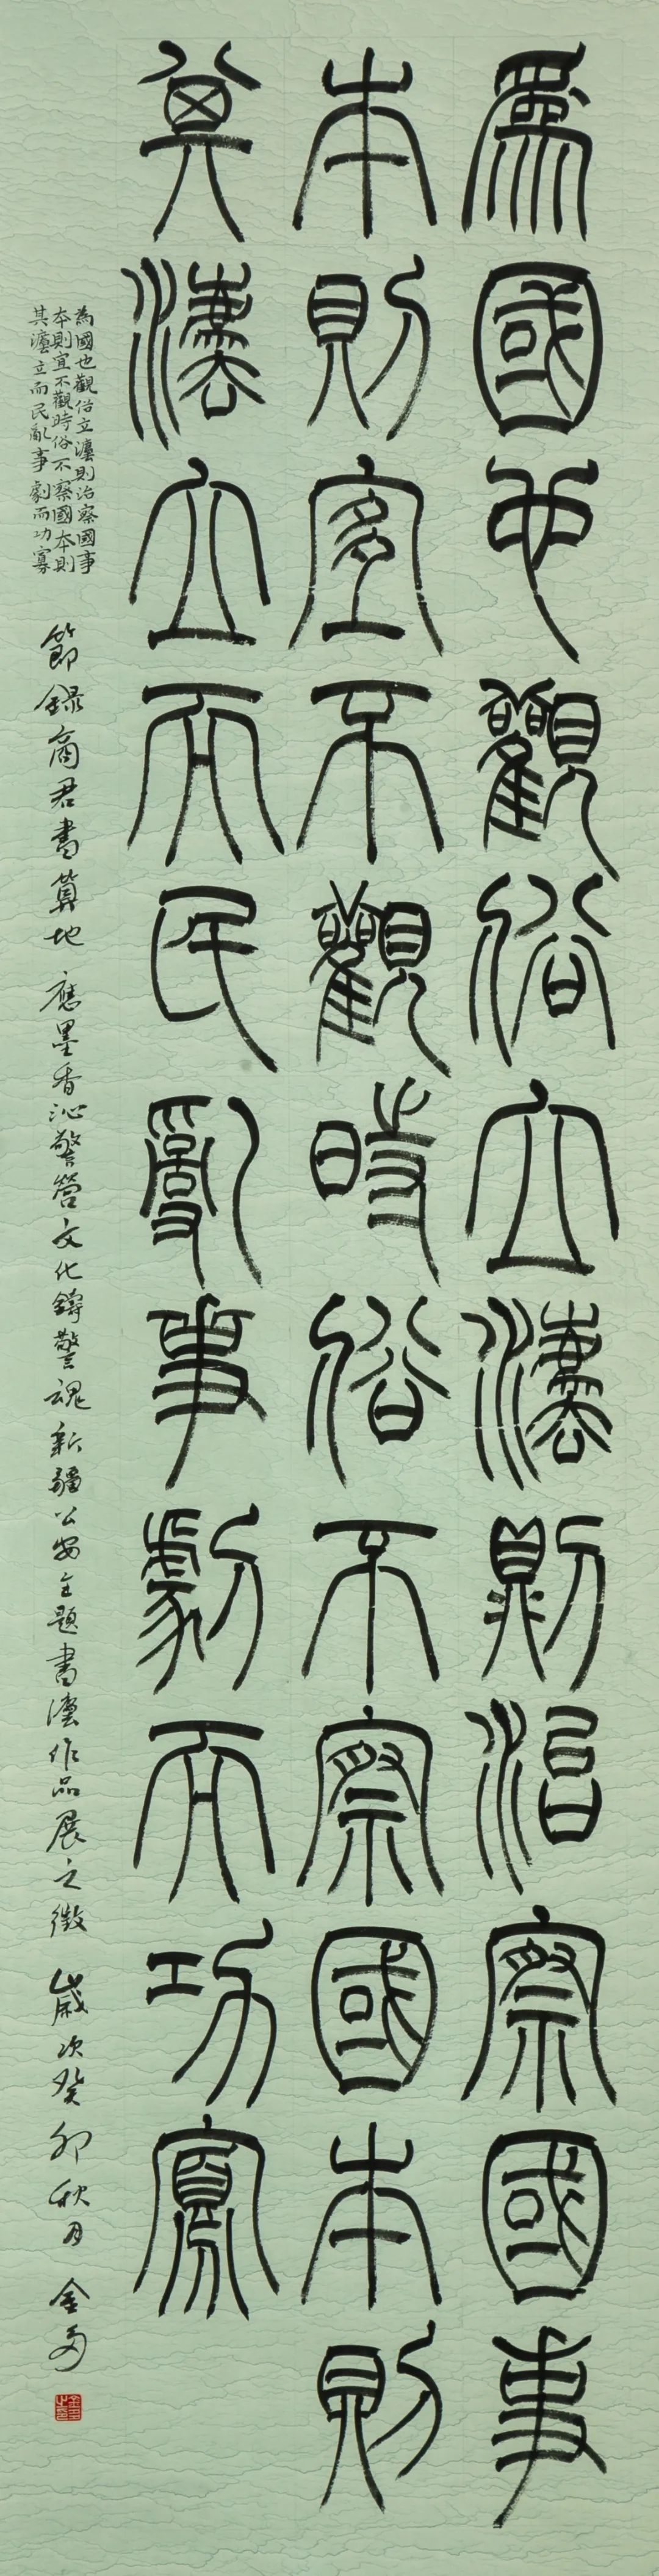 爲國也觀俗立灋則治察國事
本則宜不觀時俗不察國本則
其灋立而民亂事劇而功寡
為國也觀俗立灋則治察國事
本則宜不觀時俗不察國本則
其灋立而民亂事劇而功寡
節録商君書算地 應墨香沁警營文化鑄警魂新疆公安主題書灋作品展之徵 歲次癸卯秋月 金